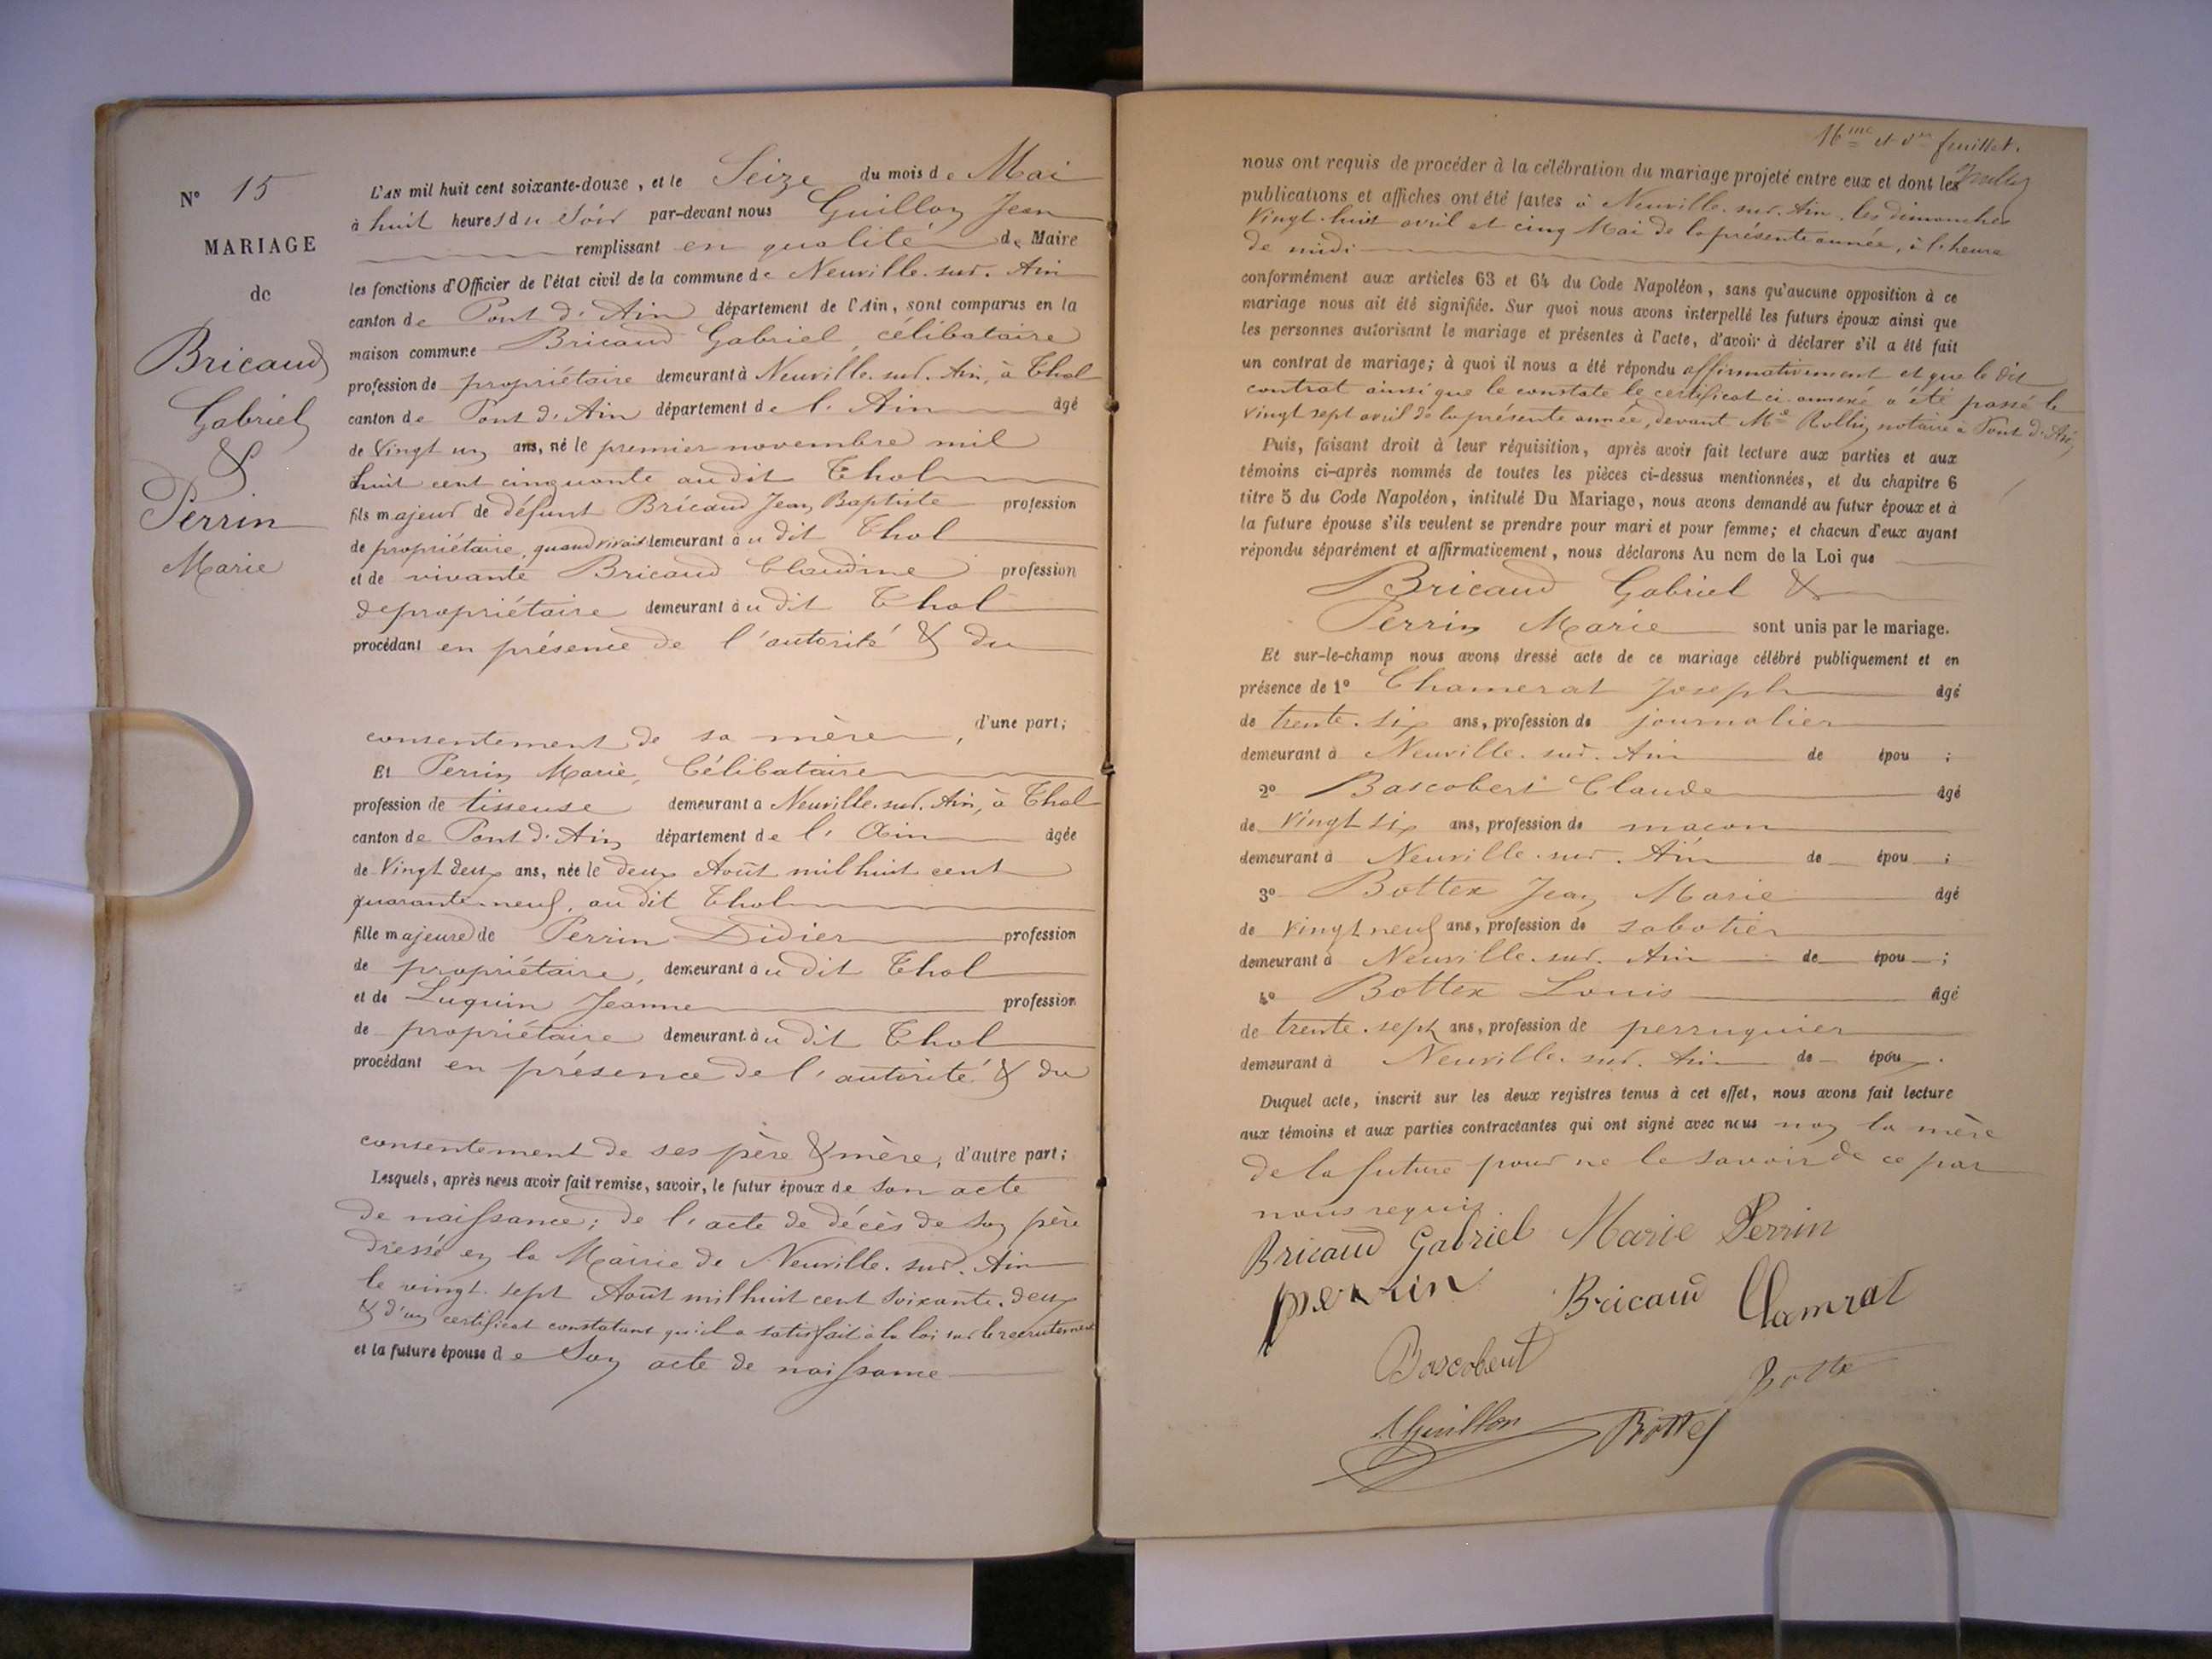 N° 15
MARIAGE
de
Bricaud
Gabriel
&
Perrin
Marie
L'AN mil huit cent soixante-douze, et le Seize du mois de Mai
à huit heures du Soir par-devant nous Guillon Jean
remplissant en qualité de Maire
les fonctions d'Officier de l'état civil de la commune de Neuville-sur-Ain
canton de Pont d'Ain département de l'Ain, sont comparus en la
maison commune Bricaud Gabriel, célibataire
profession de propriétaire demeurant à Neuville-sur-Ain, à Thol
canton de Pont d'Ain département de l'Ain âgé
de Vingt un ans, né le premier novembre mil
huit cent cinquante au dit Thol
fils majeur de défunt Bricaud Jean Baptiste profession
de propriétaire, quand vivait demeurant au dit Thol
et de vivante Bricaud Claudine profession
de propriétaire demeurant au dit Thol
procédant en présence de l'autorité & du
consentement de sa mère, d'une part;
Et Perrin Marie, Célibataire
profession de tisseuse demeurant à Neuville-sur-Ain, à Thol
canton de Pont d'Ain département de l'Ain âgée
de Vingt deux ans, née le deux Août mil huit cent
quarante-neuf, au dit Thol
fille majeure de Perrin Didier profession
de propriétaire, demeurant au dit Thol
et de Luquin Jeanne profession
de propriétaire demeurant au dit Thol
procédant en présence de l'autorité & du
consentement de ses père & mère, d'autre part;
Lesquels, après nous avoir fait remise, savoir, le futur époux de son acte
de naissance; de l'acte de décès de son père
dressé en la Mairie de Neuville-sur-Ain
le vingt-sept Août mil huit cent soixante-deux
& d'un certificat constatant qu'il a satisfait à la loi sur le recrutement
et la future épouse de Son acte de naissance
16me et der feuillet.
nous ont requis de procéder à la célébration du mariage projeté entre eux et dont les
publications et affiches ont été faites à Neuville-sur-Ain, les dimanches
Vingt-huit avril et cinq Mai de la présente année, à l'heure
de midi
conformément aux articles 63 et 64 du Code Napoléon, sans qu'aucune opposition à ce
mariage nous ait été signifiée. Sur quoi nous avons interpellé les futurs époux ainsi que
les personnes autorisant le mariage et présentes à l'acte, d'avoir à déclarer s'il a été fait
un contrat de mariage; à quoi il nous a été répondu affirmativement et que le dit
contrat ainsi que le constate le certificat ci-annexé a été passé le
vingt sept avril de la présente année, devant Me Rollin notaire à Pont d'Ain,
Puis, faisant droit à leur réquisition, après avoir fait lecture aux parties et aux
témoins ci-après nommés de toutes les pièces ci-dessus mentionnées, et du chapitre 6
titre 5 du Code Napoléon, intitulé Du Mariage, nous avons demandé au futur époux et à
la future épouse s'ils veulent se prendre pour mari et pour femme; et chacun d'eux ayant
répondu séparément et affirmativement, nous déclarons Au nom de la Loi que
Bricaud Gabriel &
Perrin Marie sont unis par le mariage.
Et sur-le-champ nous avons dressé acte de ce mariage célébré publiquement et en
présence de 1° Chamerat Joseph âgé
de trente-six ans, profession de journalier
demeurant à Neuville-sur-Ain de épou ;
2° Bascobert Claude âgé
de Vingt six ans, profession de maçon
demeurant à Neuville-sur-Ain de épou ;
3° Bottex Jean Marie âgé
de vingt neuf ans, profession de sabotier
demeurant à Neuville-sur-Ain de épou ;
4° Bottex Louis âgé
de trente-sept ans, profession de perruquier
demeurant à Neuville-sur-Ain de épou .
Duquel acte, inscrit sur les deux registres tenus à cet effet, nous avons fait lecture
aux témoins et aux parties contractantes qui ont signé avec nous non la mère
de la future pour ne le savoir de ce par
nous requis
Bricaud Gabriel Marie Perrin
perrin Bricaud Clamrat
Bascobert
Guillon